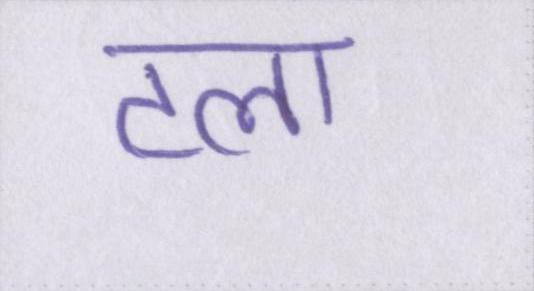 टला